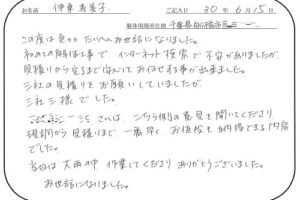 お名前 伊東 寿美子 ご記入日 30年 6月 15日
解体現場所在地 千葉県船橋市
この度は色々とたいへんお世話になりました。
初めての解体工事で、インターネット検索で不安がありましたが、
見積りから完了まで安心してお任せする事が出来ました。
三社の見積りをお願いしていましたが、
三社三様でした。
さんは、こちら側の意見を聞いてくださり
現調から見積りまで、一番早く、お値段も納得できる内容
でした。
当日は大雨の中作業してくださりありがとうございました。
お世話になりました。